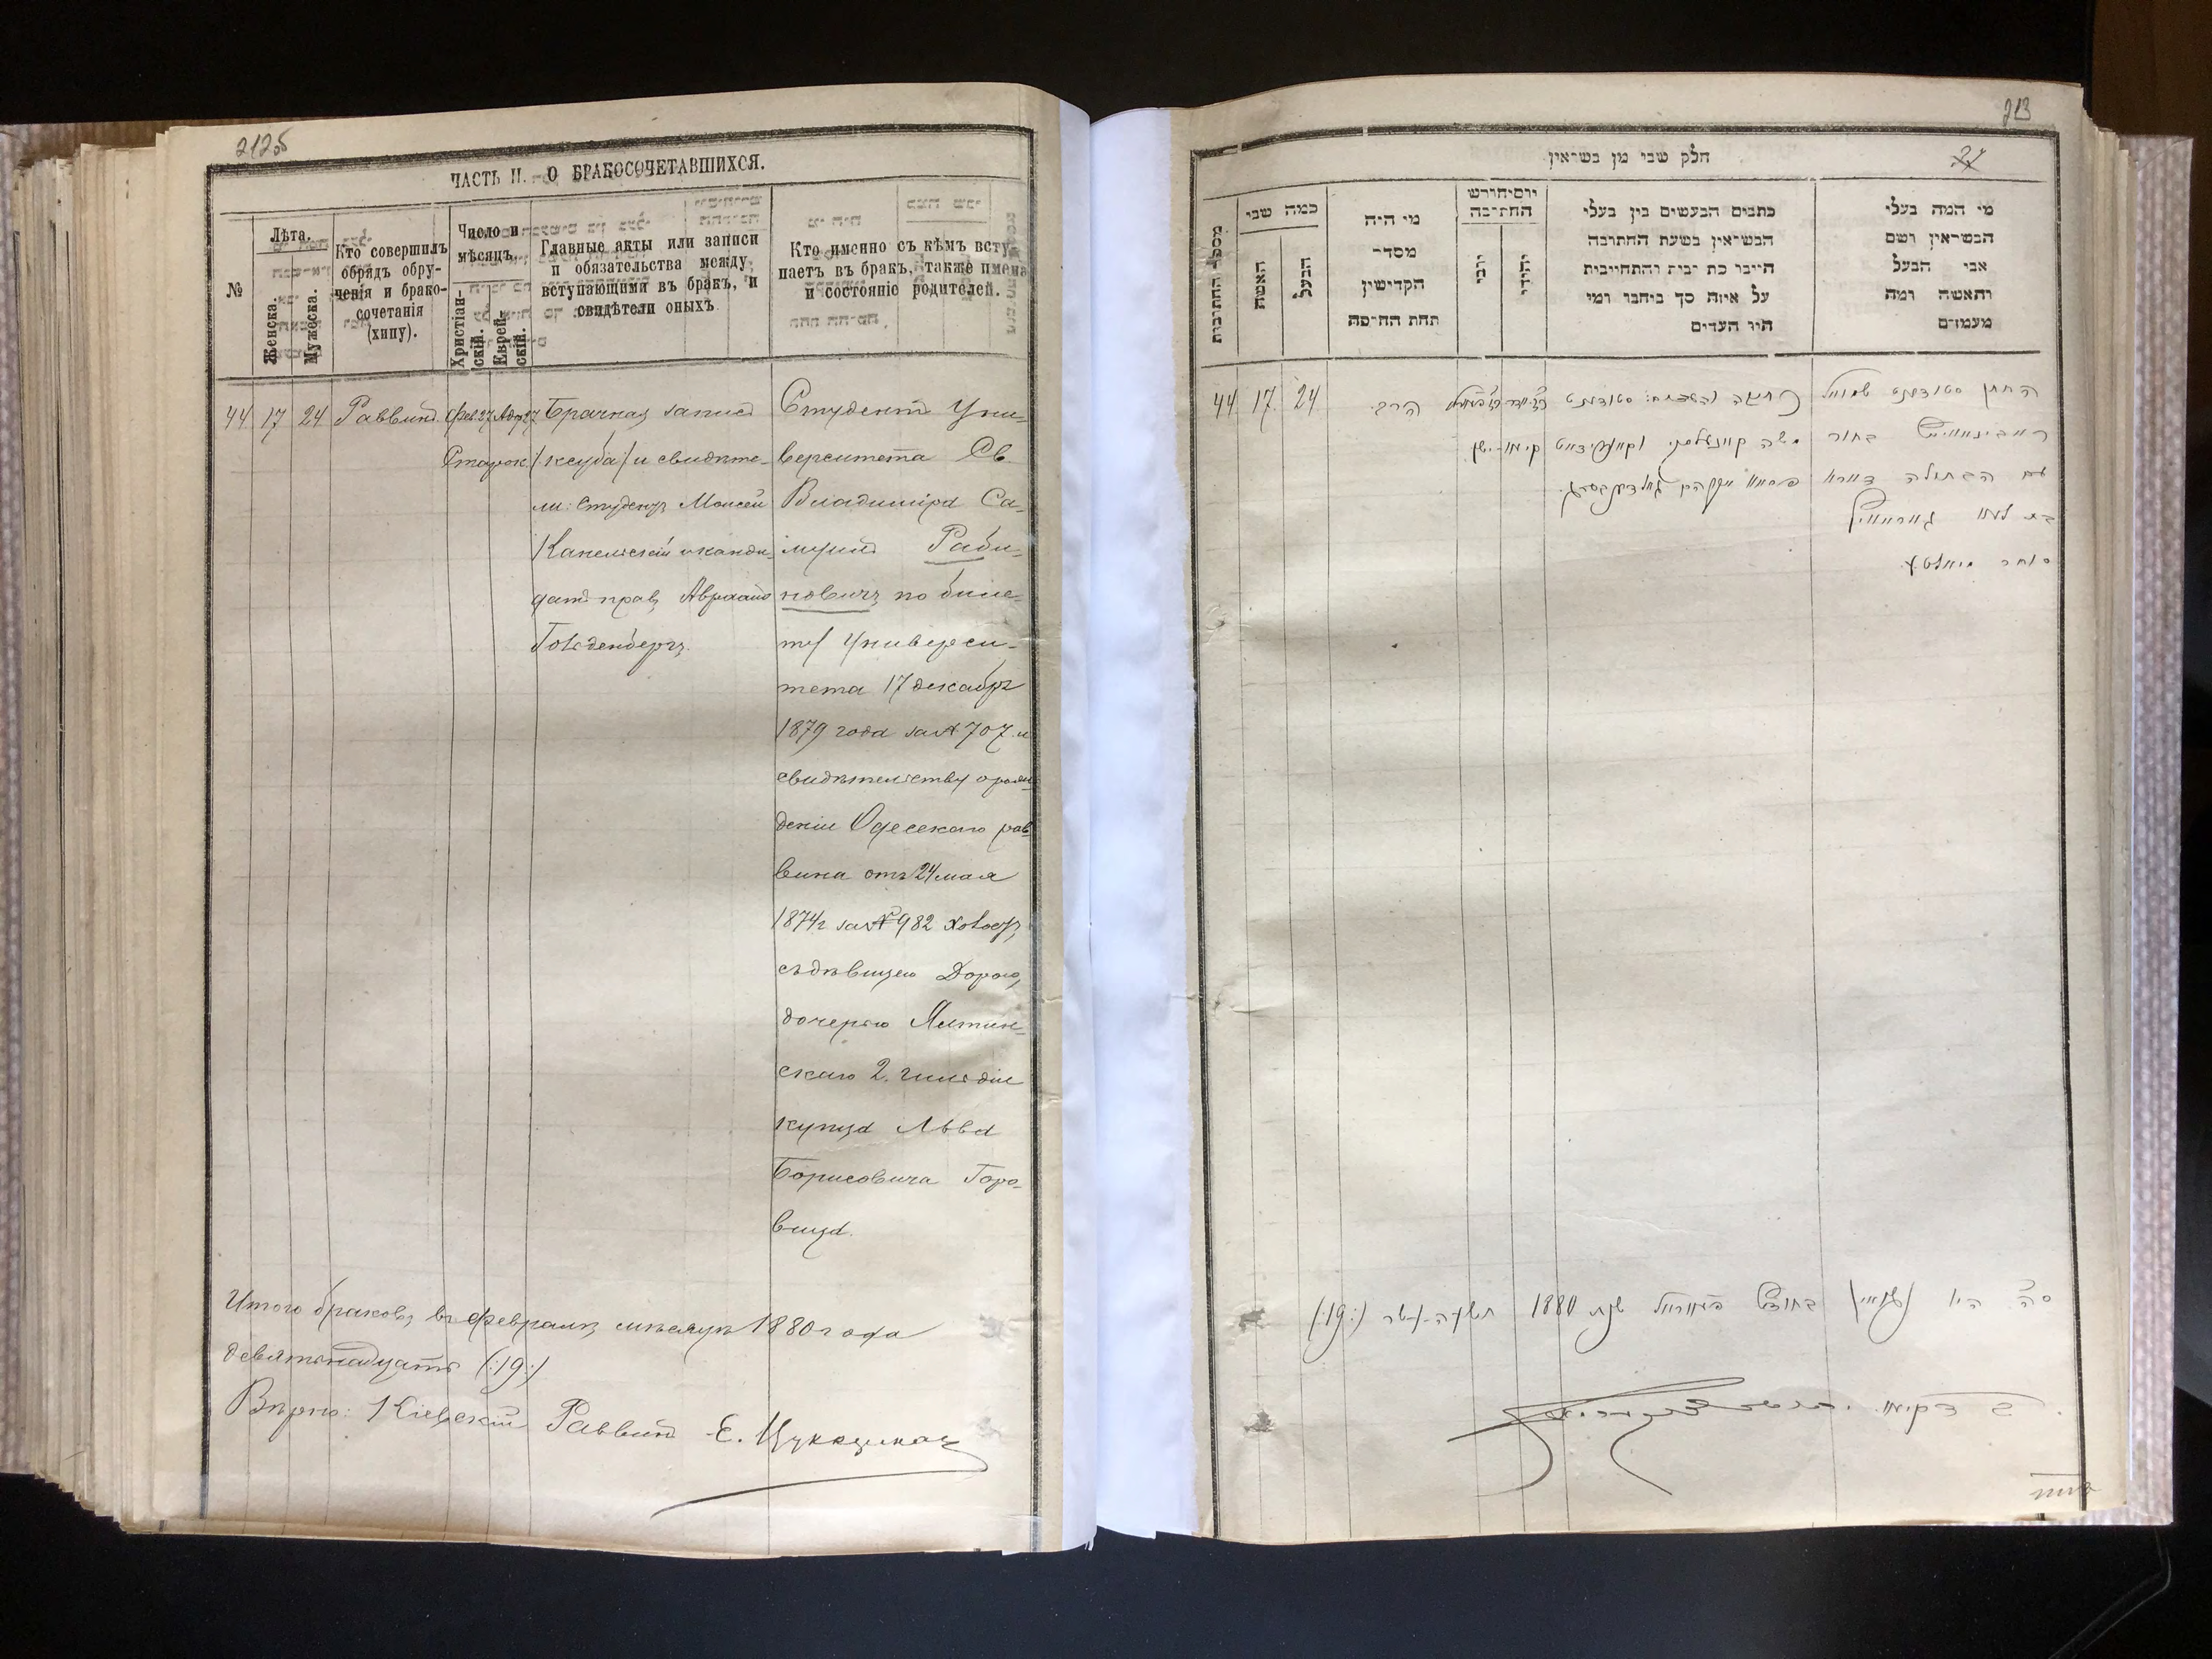 212об
ЧАСТЬ II. О БРАКОСОЧЕТАВШИХСЯ.
№
Лѣта.
Женска.
Мужеска.
Кто совершилъ
обрядъ обру-
ченія и брако-
сочетанія
(хипу).
Число и
мѣсяцъ.
Христіан-
скій.
Еврей-
скій.
Главные акты или записи
и обязательства между
вступающими въ бракъ, и
свидѣтели оныхъ
Кто именно съ кѣмъ всту-
паетъ въ бракъ, также имена
и состояніе родителей.
44 17 24 Раввинъ
Фев. 27 Адар 27
Брачная запись
(ксуба) и свидѣте-
ли: студентъ Моисей
Канельскій и канди-
датъ правъ Авраамъ
Гольденбергъ.
Студентъ Уни-
верситета Св.
Владиміра Са-
муилъ Раби-
новичъ по биле-
ту Универси-
тета 17 декабря
1879 года за № 707 и
свидѣтельству о рож-
деніи Одесскаго рав-
вина отъ 24 мая
1874 г за № 982 холостъ,
съ дѣвицею Дорою,
дочерью Ялтин-
скаго 2. гильдіи
купца Льва
Борисовича Горо-
вица.
Итого браковъ въ февралѣ мѣсяцѣ 1880 года
девятьнадцать (:19:)
Вѣрно: Кіевскій Раввинъ Е. Цукерманъ
213
חלק שני מן נשואין
מספר החתונות
כמה שני
האשה
הבעל
מי היה
מסדר
הקדישין
תחת החופה
יום וחודש
החתונה
יוני
יהודי
כתבים הנעשים בין בעלי
הנשואין בשעת החתונה
הייבו כת יבית והתחייבות
על איזה סך ביחבו ומי
היו העדים
מי המה בעלי
הנשואין ושם
אבי הבעל
והאשה ומה
מעמדם
44 17 24
הרב
החתן סטודענט שמואל
ראבינאוויטש בחור
עם הבתולה דארא
בת לעוו גוראוויץ
סוחר מיאלטע
משה קאנעלסקי וקאנדידאט
אברהם גאלדענבערג.
ס״ה היו נשואין בחודש פעווראל שנת 1880 תשעה-עשר (:19:)